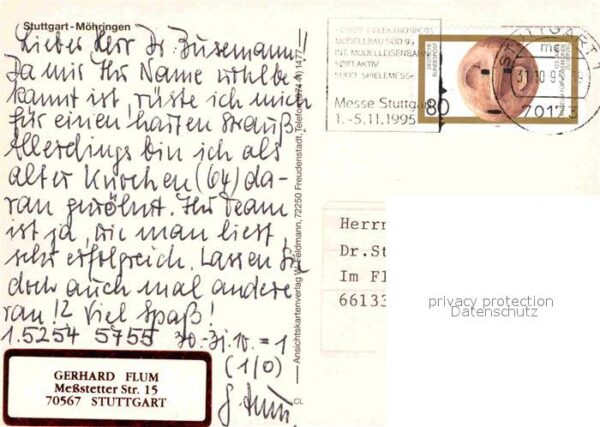 Stuttgart-Möhringen
Lieber Herr Dr. Busemann!
Da mir Ihr Name wohlbe-
kannt ist, rüste ich mich
für einen harten Strauß.
Allerdings bin ich als
alter Knochen (64) da-
ran gewöhnt. Ihr Team
ist ja, wie man liest
sehr erfolgreich. Lassen Sie
doch auch mal andere
ran! 2 Viel Spaß!
1. 5254 5755 30.-31.10. = 1
(1/0)
G. Flum
GERHARD FLUM
Meßstetter Str. 15
70567 STUTTGART
Ansichtskartenverlag W. Feldmann, 72250 Freudenstadt, Telefon (0 74 41) 1477
CL
HOBBY + ELEKTRONIK 95
MODELLBAU SÜD 95
INT. MODELLEISENBAHN
SPIELAKTIV
SÜDD. SPIELEMESSE
Messe Stuttgart
1.-5.11.1995
DEUTSCHE
BUNDESPOST
80
STUTTGART 1
mc
31.10.9
70173
Herrn
Dr.St
Im Fl
66133
privacy protection
Datenschutz